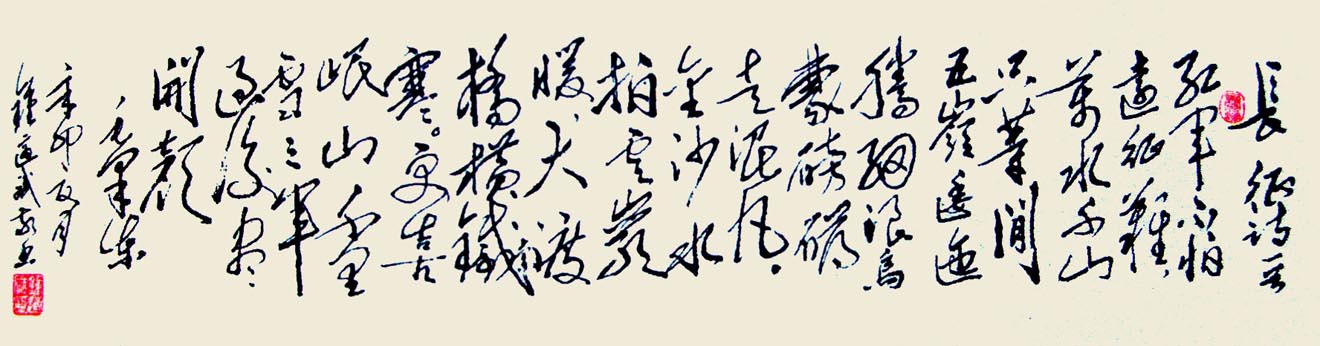 長征詩一首
紅軍不怕
遠征難
萬水千山
只等閒
五嶺逶迤
騰細浪烏
蒙磅礴
走泥丸
金沙水
拍雲崖
暖大渡
橋橫鐵索
寒更喜
岷山千里
雪三軍
過後盡
開顏
辛卯夏月